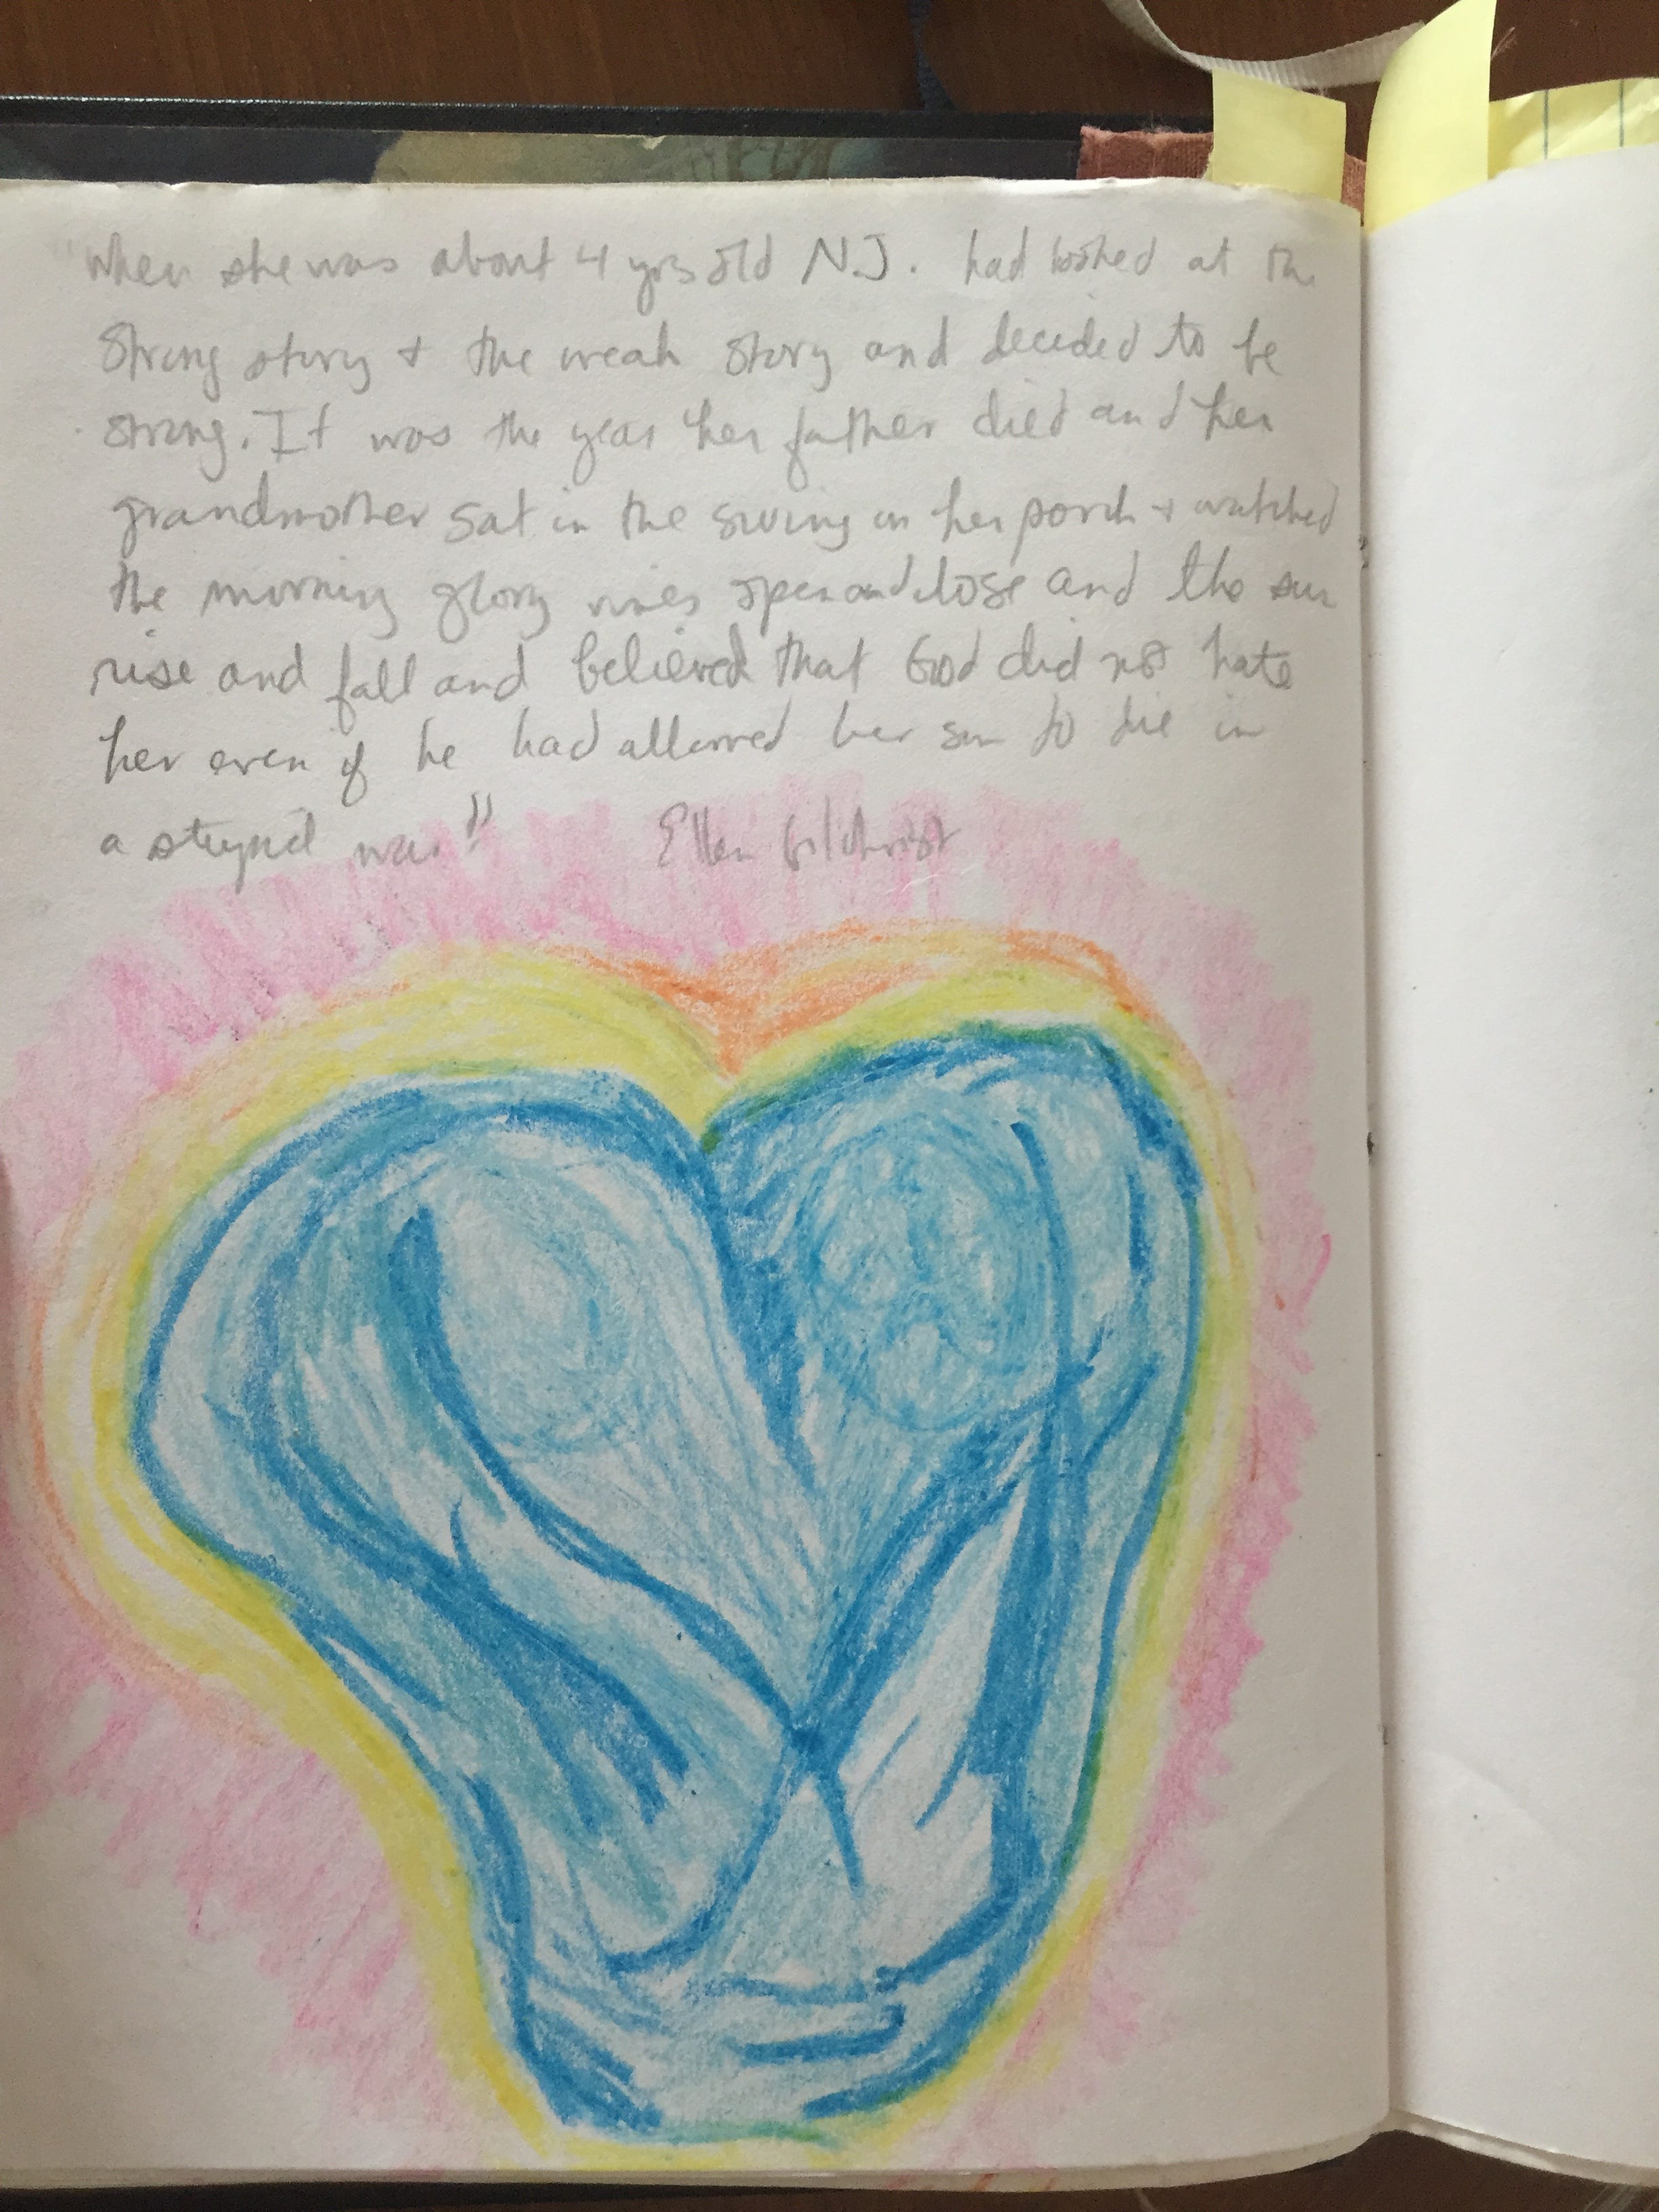 "When she was about 4 yrs old N.J. had looked at the
strong story + the weak story and decided to be
strong. It was the year her father died and her
grandmother sat in the swing on her porch + watched
the morning glory vines open and close and the sun
rise and fall and believed that God did not hate
her even if he had allowed her son to die in
a stupid war."  Ellen Gilchrist